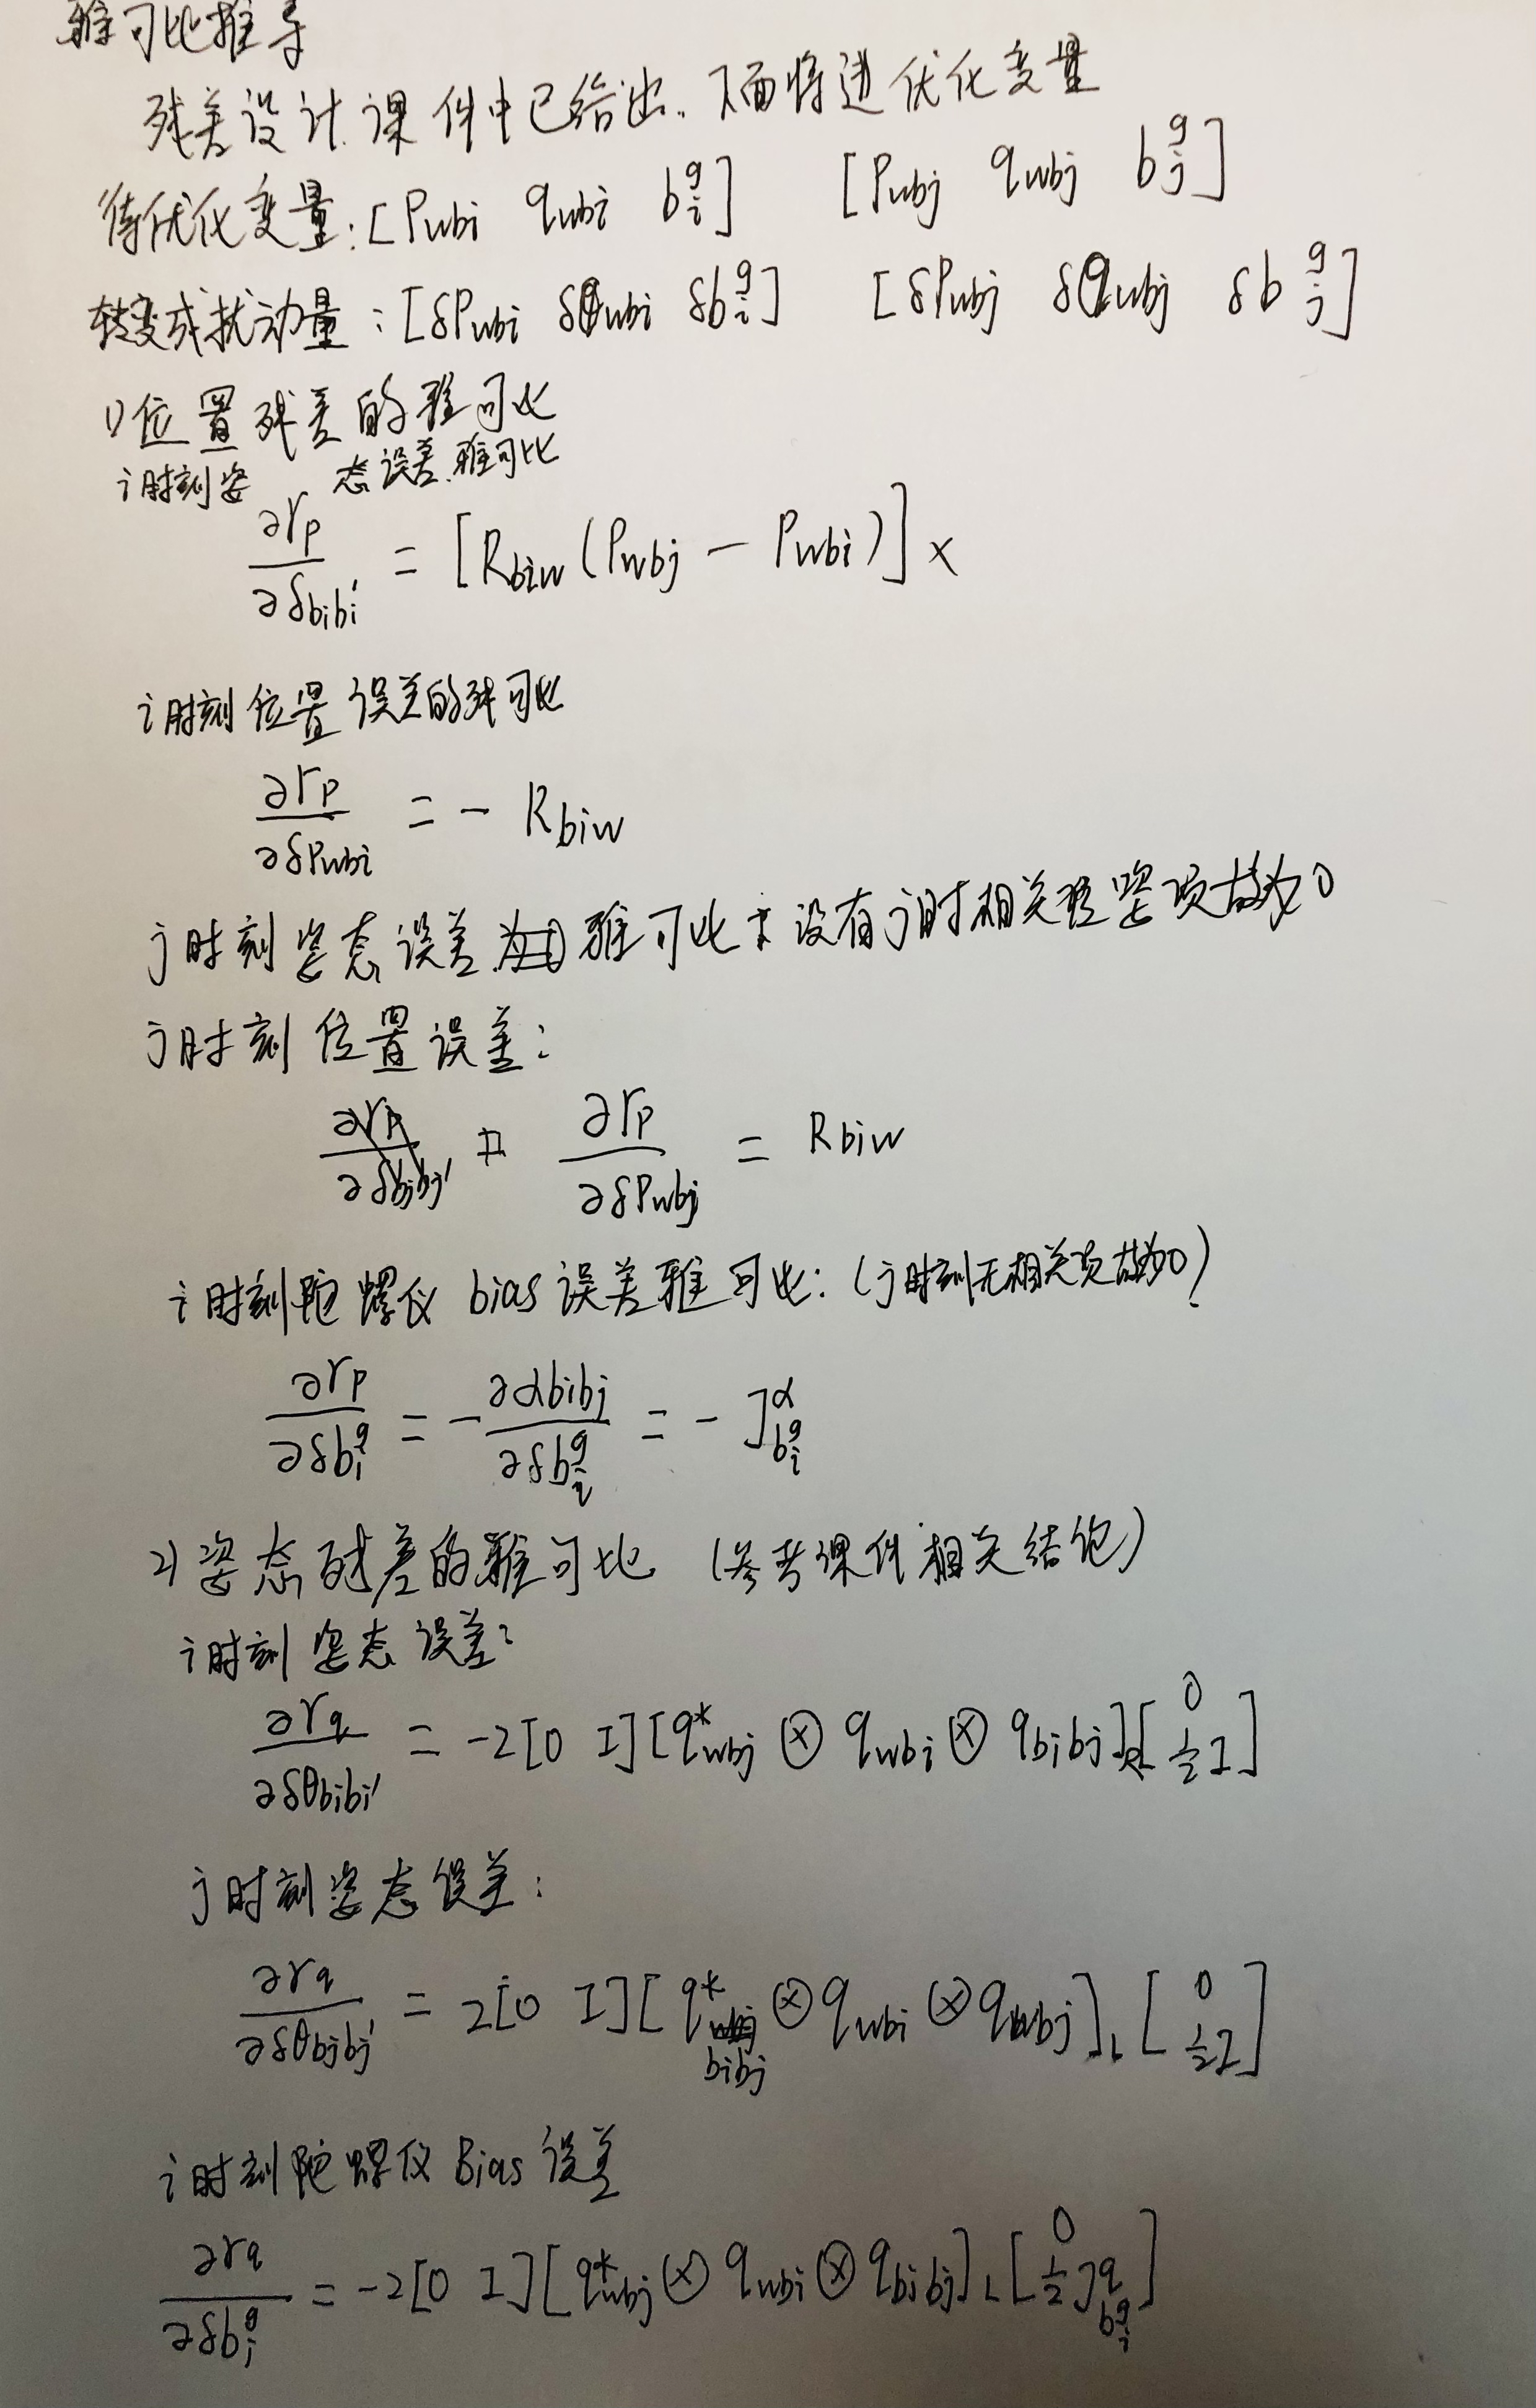 雅可比推导
残差设计课件中已给出. 下面将进优化变量
待优化变量: [Pwbi qwbi b_i^g] [Pwbj qwbj b_j^g]
转变成扰动量: [δPwbi δθwbi δb_i^g] [δPwbj δθwbj δb_j^g]
1) 位置残差的雅可比
i时刻姿态误差雅可比
∂r_p/∂δbibi' = [R_biw(Pwbj − Pwbi)]×
i时刻位置误差的残可比
∂r_p/∂δPwbi = − R_biw
j时刻姿态误差雅可比: 没有j时相关姿项故为0
j时刻位置误差:
∂r_p/∂δPwbj = R_biw
i时刻陀螺仪bias误差雅可比: (j时刻无相关项故为0)
∂r_p/∂δb_i^g = −∂αbibj/∂δb_i^g = − J^α_{b_i^g}
2) 姿态残差的雅可比 (参考课件相关结论)
i时刻姿态误差:
∂r_q/∂δθbibi' = −2[0 I][q*wbj ⊗ qwbi ⊗ qbibj]_R [0 ½I]
j时刻姿态误差:
∂r_q/∂δθbjbj' = 2[0 I][q*bibj ⊗ qwbi ⊗ qwbj]_L [0 ½I]
i时刻陀螺仪Bias误差
∂r_q/∂δb_i^g = −2[0 I][q*wbj ⊗ qwbi ⊗ qbibj]_L [0 ½J^q_{b_i^g}]